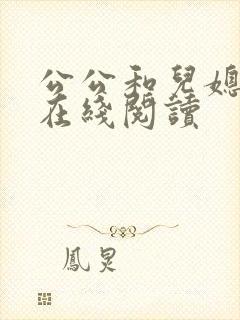 公公和兒媳
在綫閱讀
鳳炅